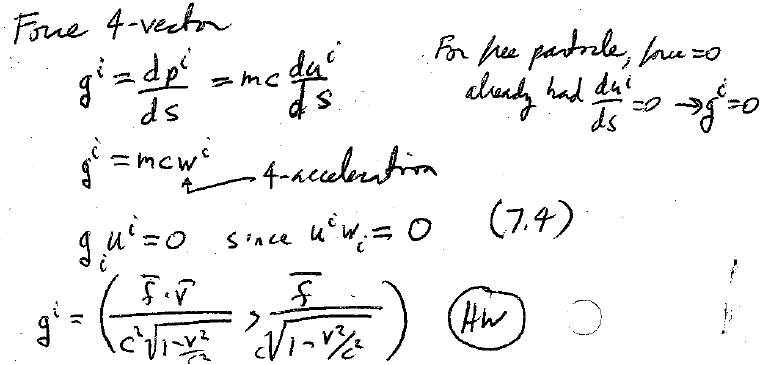 Force 4-vector
g^i = dp^i/ds = mc du^i/ds
For free particle, force = 0
already had du^i/ds = 0 → g^i = 0
g^i = mcw^i
4-acceleration
g_i u^i = 0 since u^i w_i = 0 (7.4)
g^i = ( f̄·v̄ / c²√(1-v²/c²) , f̄ / c√(1-v²/c²) ) HW